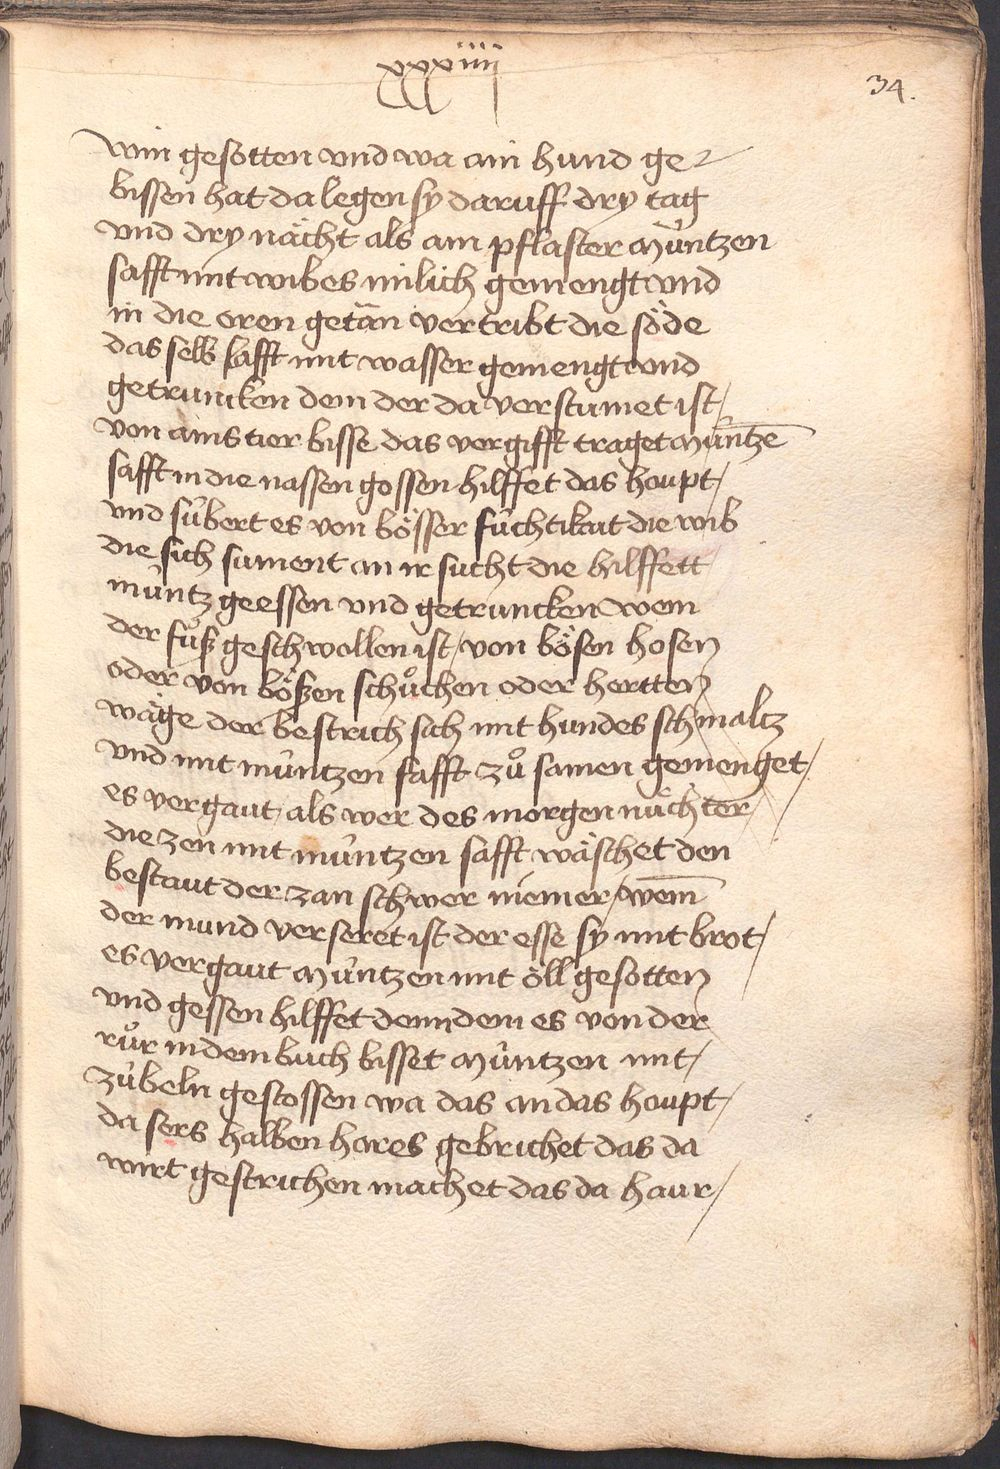 xxxiiij
34.
win gesotten vnd wa ain hund ge
bissen hat da legen sy daruff dry tag
vnd dry nächt als ain pflaster Müntzen
safft mit wibes milich gemengt vnd
in die oren getän vertribt die söde
das selb safft mit wasser gemengt vnd
getruncken dem der da verstumet ist /
von ains tier bisse das vergifft traget müntze
safft in die nassen gossen hilffet das houpt /
vnd sübert es von bösser füchtikait die wib
die sich sument an ir sucht die hilffett
müntz geessen vnd getruncken wem
der fůß geschwollen ist / von bösen hosen
oder von bößen schůchen oder hertten
wäge der bestrich sich mit hundes schmaltz
vnd mit müntzen safft zů samen gemenget /
es vergaut / als wer des morgen nüchter /
die zen mit müntzen safft wäschet den
bestaut der zan schwer niemer / wem̄
der mund verseret ist der esse sy mit brot /
es vergaut Müntzen mit öll gesotten
vnd gessen hilffet denn dem es von der
růr in dem buch bisset Müntzen mit /
zübeln gestossen wa das an das houpt /
da sers halben hares gebrichet das da
wirt gestrichen machet das da haur /